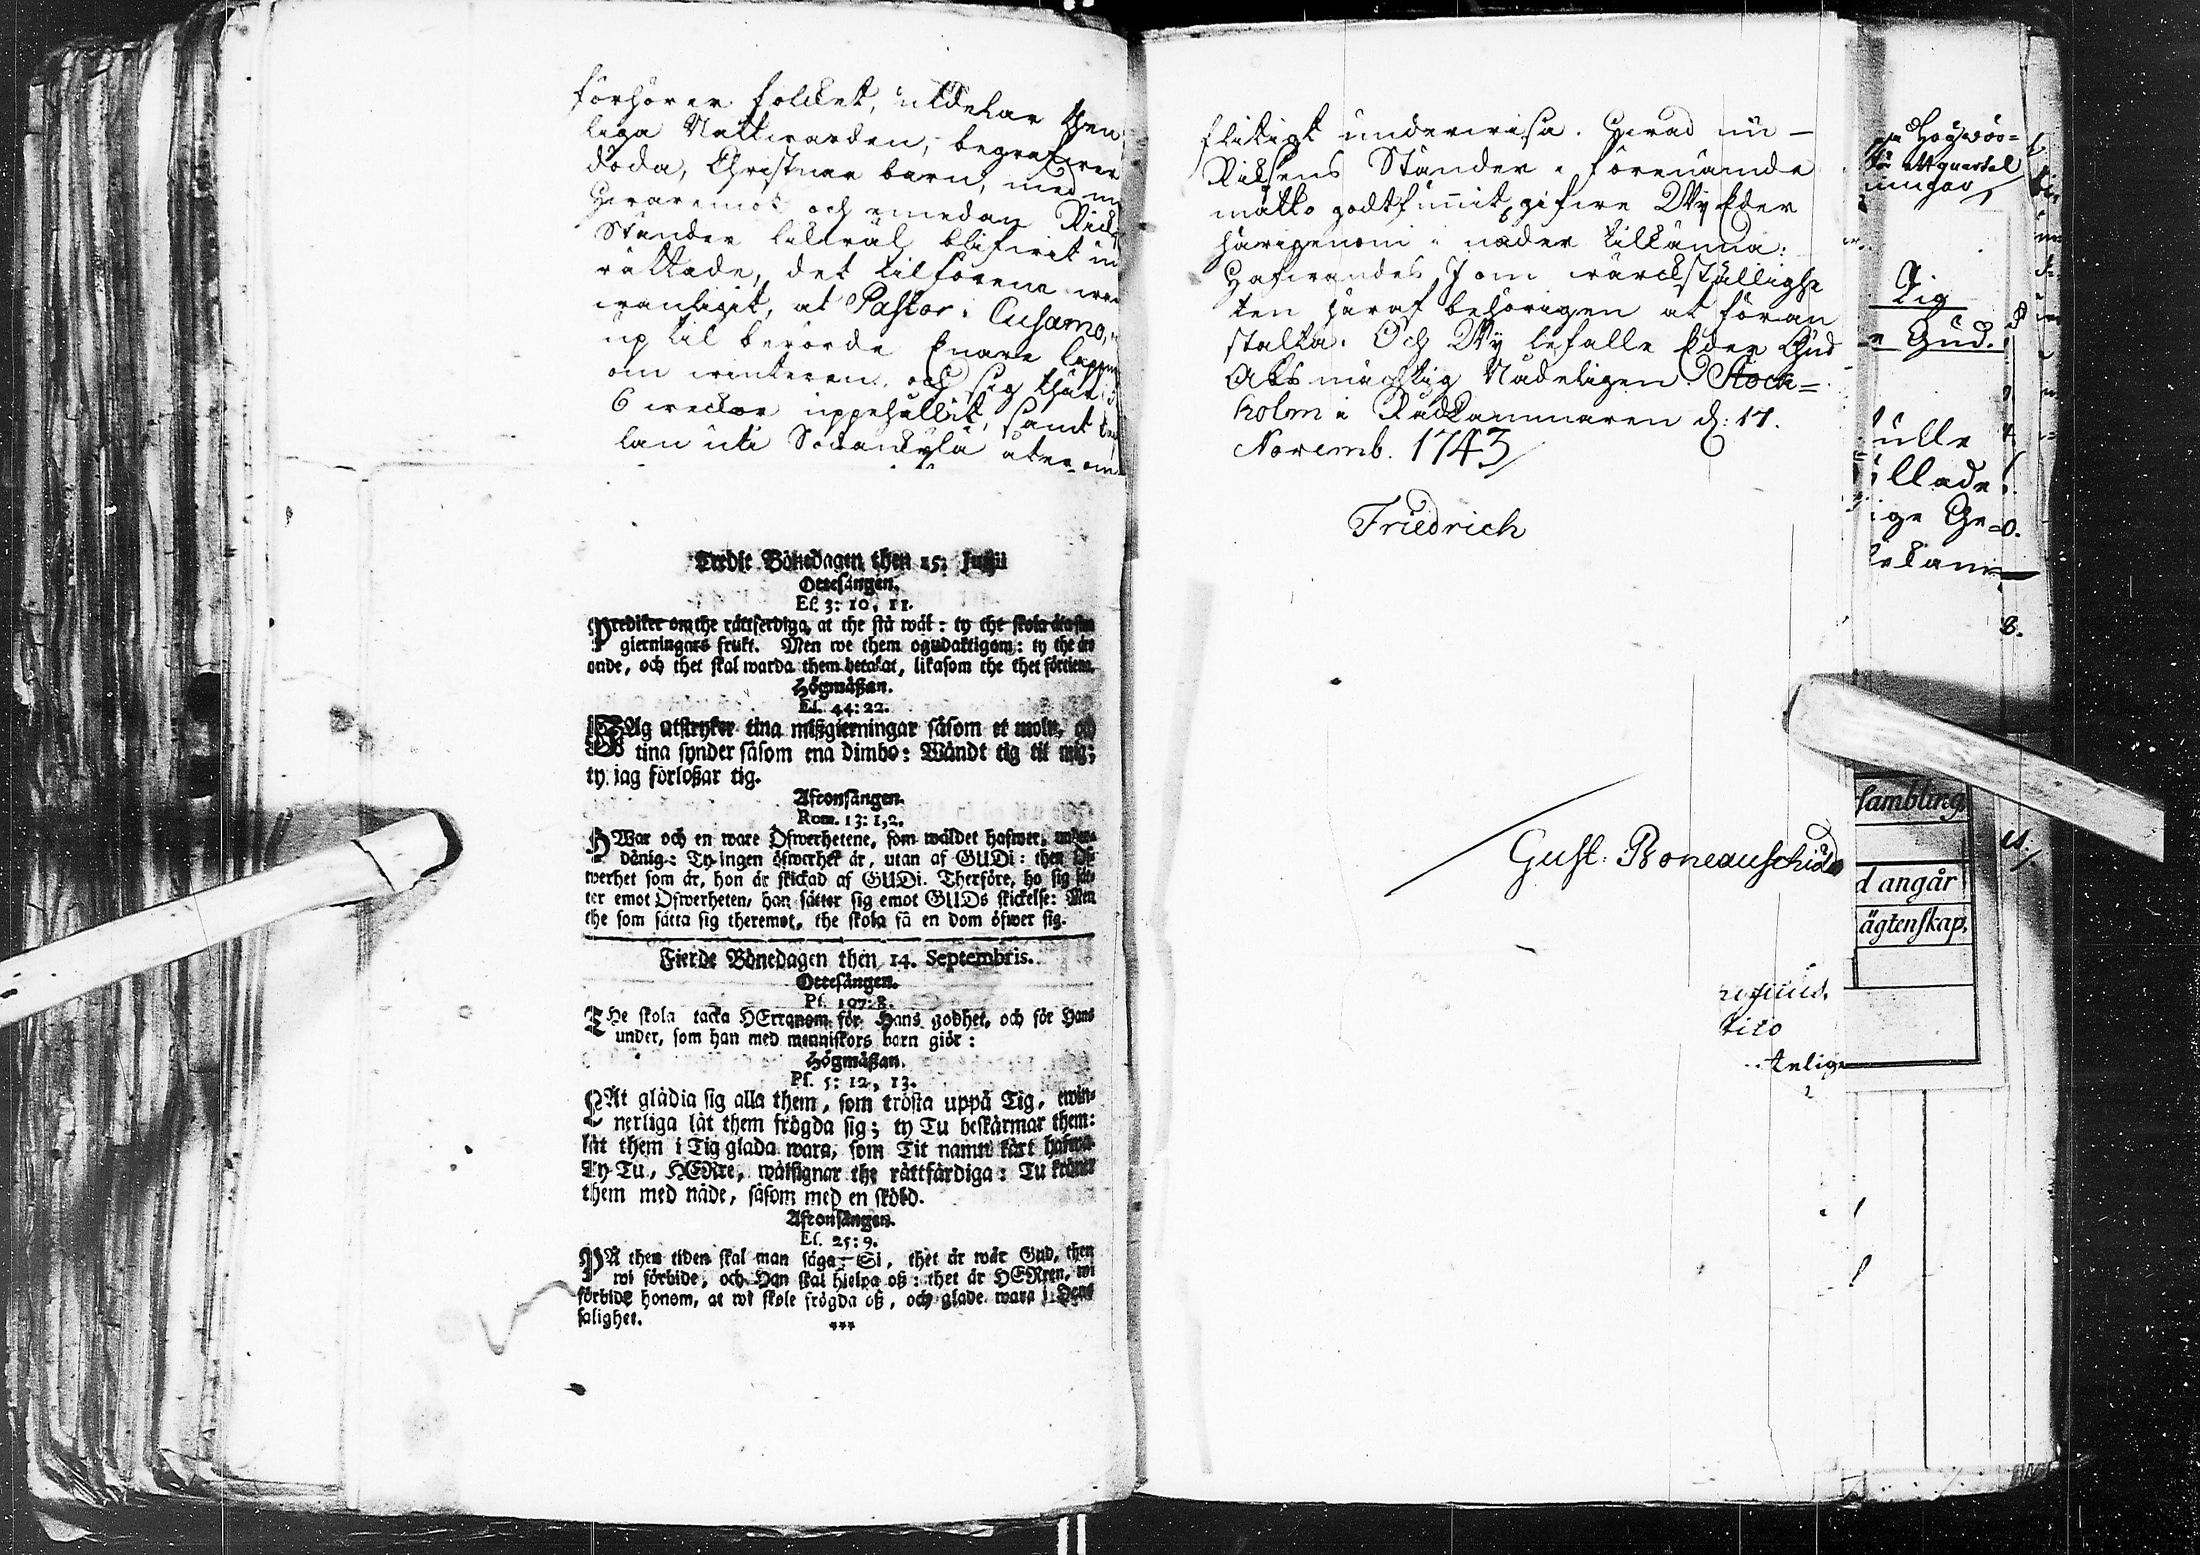 förhörer folcket, utdelar Hen
liga Nattwarden, begrafwer
döda, Christnar barn, med m
Ständer likwäl blifwit in
rättade, det tilförene war
wanligit, at Pastor i Cusamo,
up til berörde Enare lappm
om winteren, och sig thär
6 weckor uppehållit, samt
lan uti Sodankylä åter om
Tredie Bönedagen then 15. Junii
Ottesången.
Es. 3: 10, 11.
Prediker om the rättferdiga, at the stå wäl: ty the skola äta sin
gierningars frukt. Men we them ogudaktigom: ty the äro
onde, och thet skal warda them betalat, likasom the thet förtiena.
Högmäßan.
Es. 44: 22.
JAg utstryker tina mißgierningar såsom et moln, och
tina synder såsom ena dimbo: Wändt tig til mig;
ty jag förloßar tig.
Aftonsången.
Rom. 13: 1,2.
HWar och en ware Öfwerhetene, som wäldet hafwer, under-
dånig: Ty ingen öfwerhet är, utan af GUDi: then Öf-
werhet som är, hon är skickad af GUDi. Therföre, ho sig sät-
ter emot Öfwerheten, han sätter sig emot GUDs skickelse: Men
the som sätta sig theremot, the skola få en dom öfwer sig.
Fierde Bönedagen then 14. Septembris.
Ottesången.
Ps. 107: 8.
THe skola tacka HErranom för Hans godhet, och för Hans
under, som han med menniskors barn giör:
Högmäßan.
Ps. 5: 12, 13.
LÅt glädia sig alla them, som trösta uppå Tig, ewin-
nerliga låt them frögda sig; ty Tu beskärmar them:
låt them i Tig glada wara, som Tit namn kärt hafwa.
Ty Tu, HERre, wälsignar the rättfärdiga: Tu kröner
them med nåde, såsom med en sköld.
Aftonsången.
Es. 25: 9.
PÅ then tiden skal man säga: Si, thet är wår Gud, then
wi förbide, och Han skal hielpa oß: thet är HERren, wi
förbide honom, at wi skole frögda oß, och glade wara i Hans
salighet.
***
flitigt underwisa. Hwad nu
Riksens Ständer i förenämde
måtto godtfunnit, gifwe Wy Eder
härigenom i nåder tillkänna:
Hafwandes J om wärckställighe
ten häraf behörigen at föran
stalta. Och Wy befalle Eder Gud
Alsmächtig Nådeligen. Stock=
holm i Rådkammaren d: 17.
Novemb. 1743
Friedrich
Gust: Boneauschiöld
Högwör=
ett quartal
Tig
Gud.
ulle
llade
ige Ge=
sambling
d angår
ägtenskap.